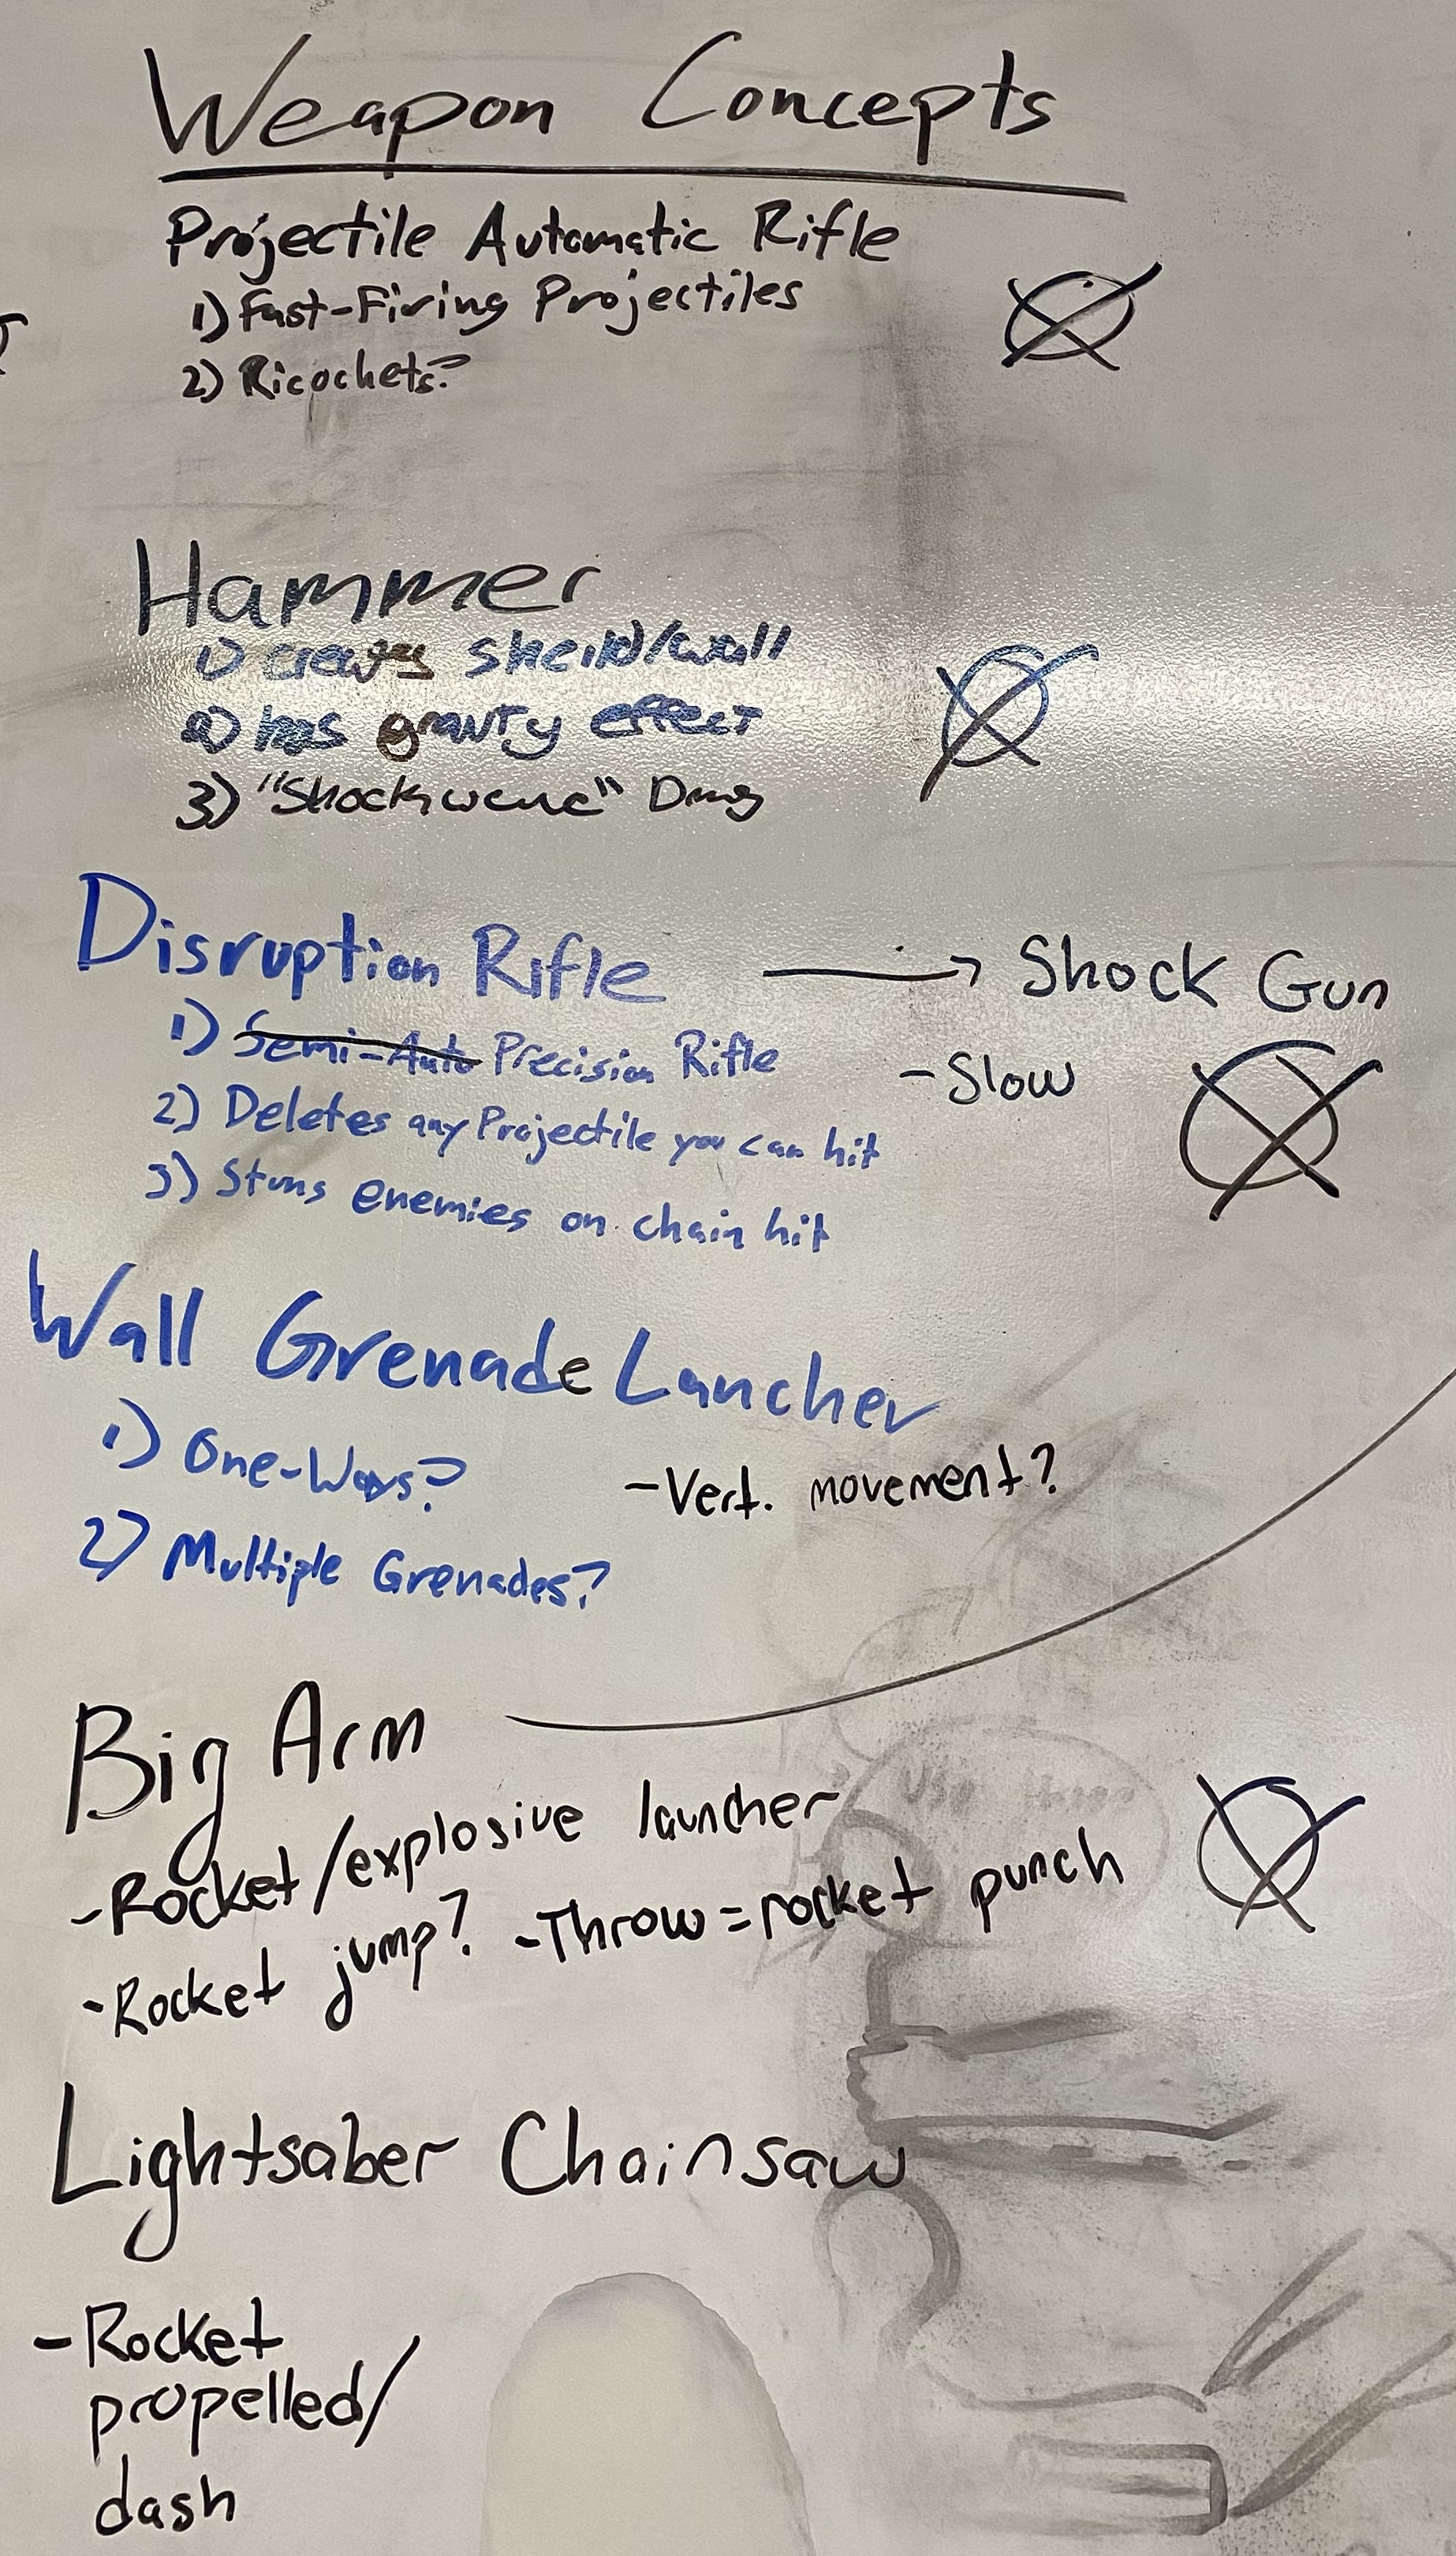 Weapon Concepts
Projectile Automatic Rifle
1) Fast-Firing Projectiles
2) Ricochets?
Hammer
1) creates sheild/wall
2) has gravity effect
3) "Shockwave" Dmg
Disruption Rifle → Shock Gun
1) Semi-Auto Precision Rifle
- Slow
2) Deletes any Projectile you can hit
3) Stuns enemies on chain hit
Wall Grenade Launcher
1) One-Ways?
- Vert. movement?
2) Multiple Grenades?
Big Arm
- Rocket/explosive launcher
- Rocket jump? - Throw = rocket punch
Lightsaber Chainsaw
- Rocket
propelled/
dash